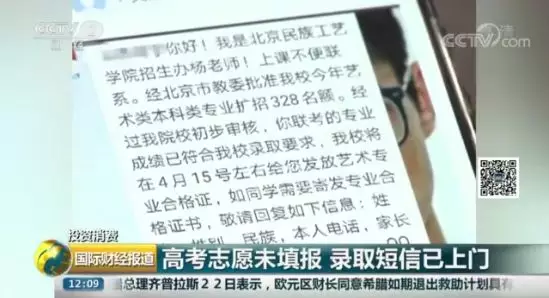 CCTV 2
财经
CCTV
你好!我是北京民族工艺
学院招生办杨老师!上课不便联
系。经北京市教委批准我校今年艺
术类本科类专业扩招328名额。经
过我院校初步审核,你联考的专业
成绩已符合我校录取要求,我校将
在4月15号左右给您发放艺术专
业合格证,如同学需要寄发专业合
格证书,敬请回复如下信息:姓
性别,民族,本人电话,家长
投资消费
国际财经报道
高考志愿未填报 录取短信已上门
12:09
总理齐普拉斯22日表示,欧元区财长同意希腊如期退出救助计划具有